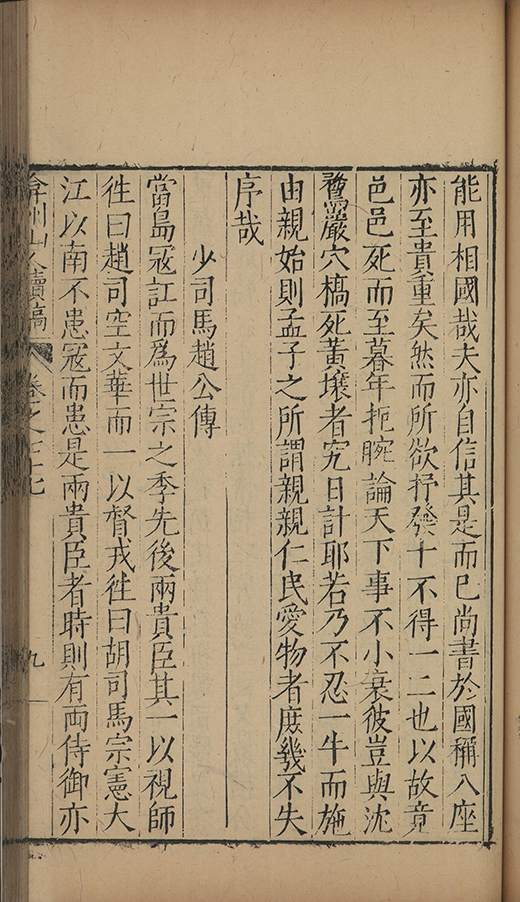 能用相國哉夫亦自信其是而已尚書於國稱八座
亦至貴重矣然而所欲抒發十不得一二也以故竟
邑邑死而至暮年扼腕論天下事不小衰彼豈與沈
鷙巖穴槁死黃壤者究日計耶若乃不忍一牛而施
由親始則孟子之所謂親親仁民愛物者庶幾不失
序哉
少司馬趙公傳
當島寇訌而爲世宗之季先後兩貴臣其一以視師
徃曰趙司空文華而一以督戎徃曰胡司馬宗憲大
江以南不患寇而患是兩貴臣者時則有両侍御亦
弇州山人續稿
卷之
九